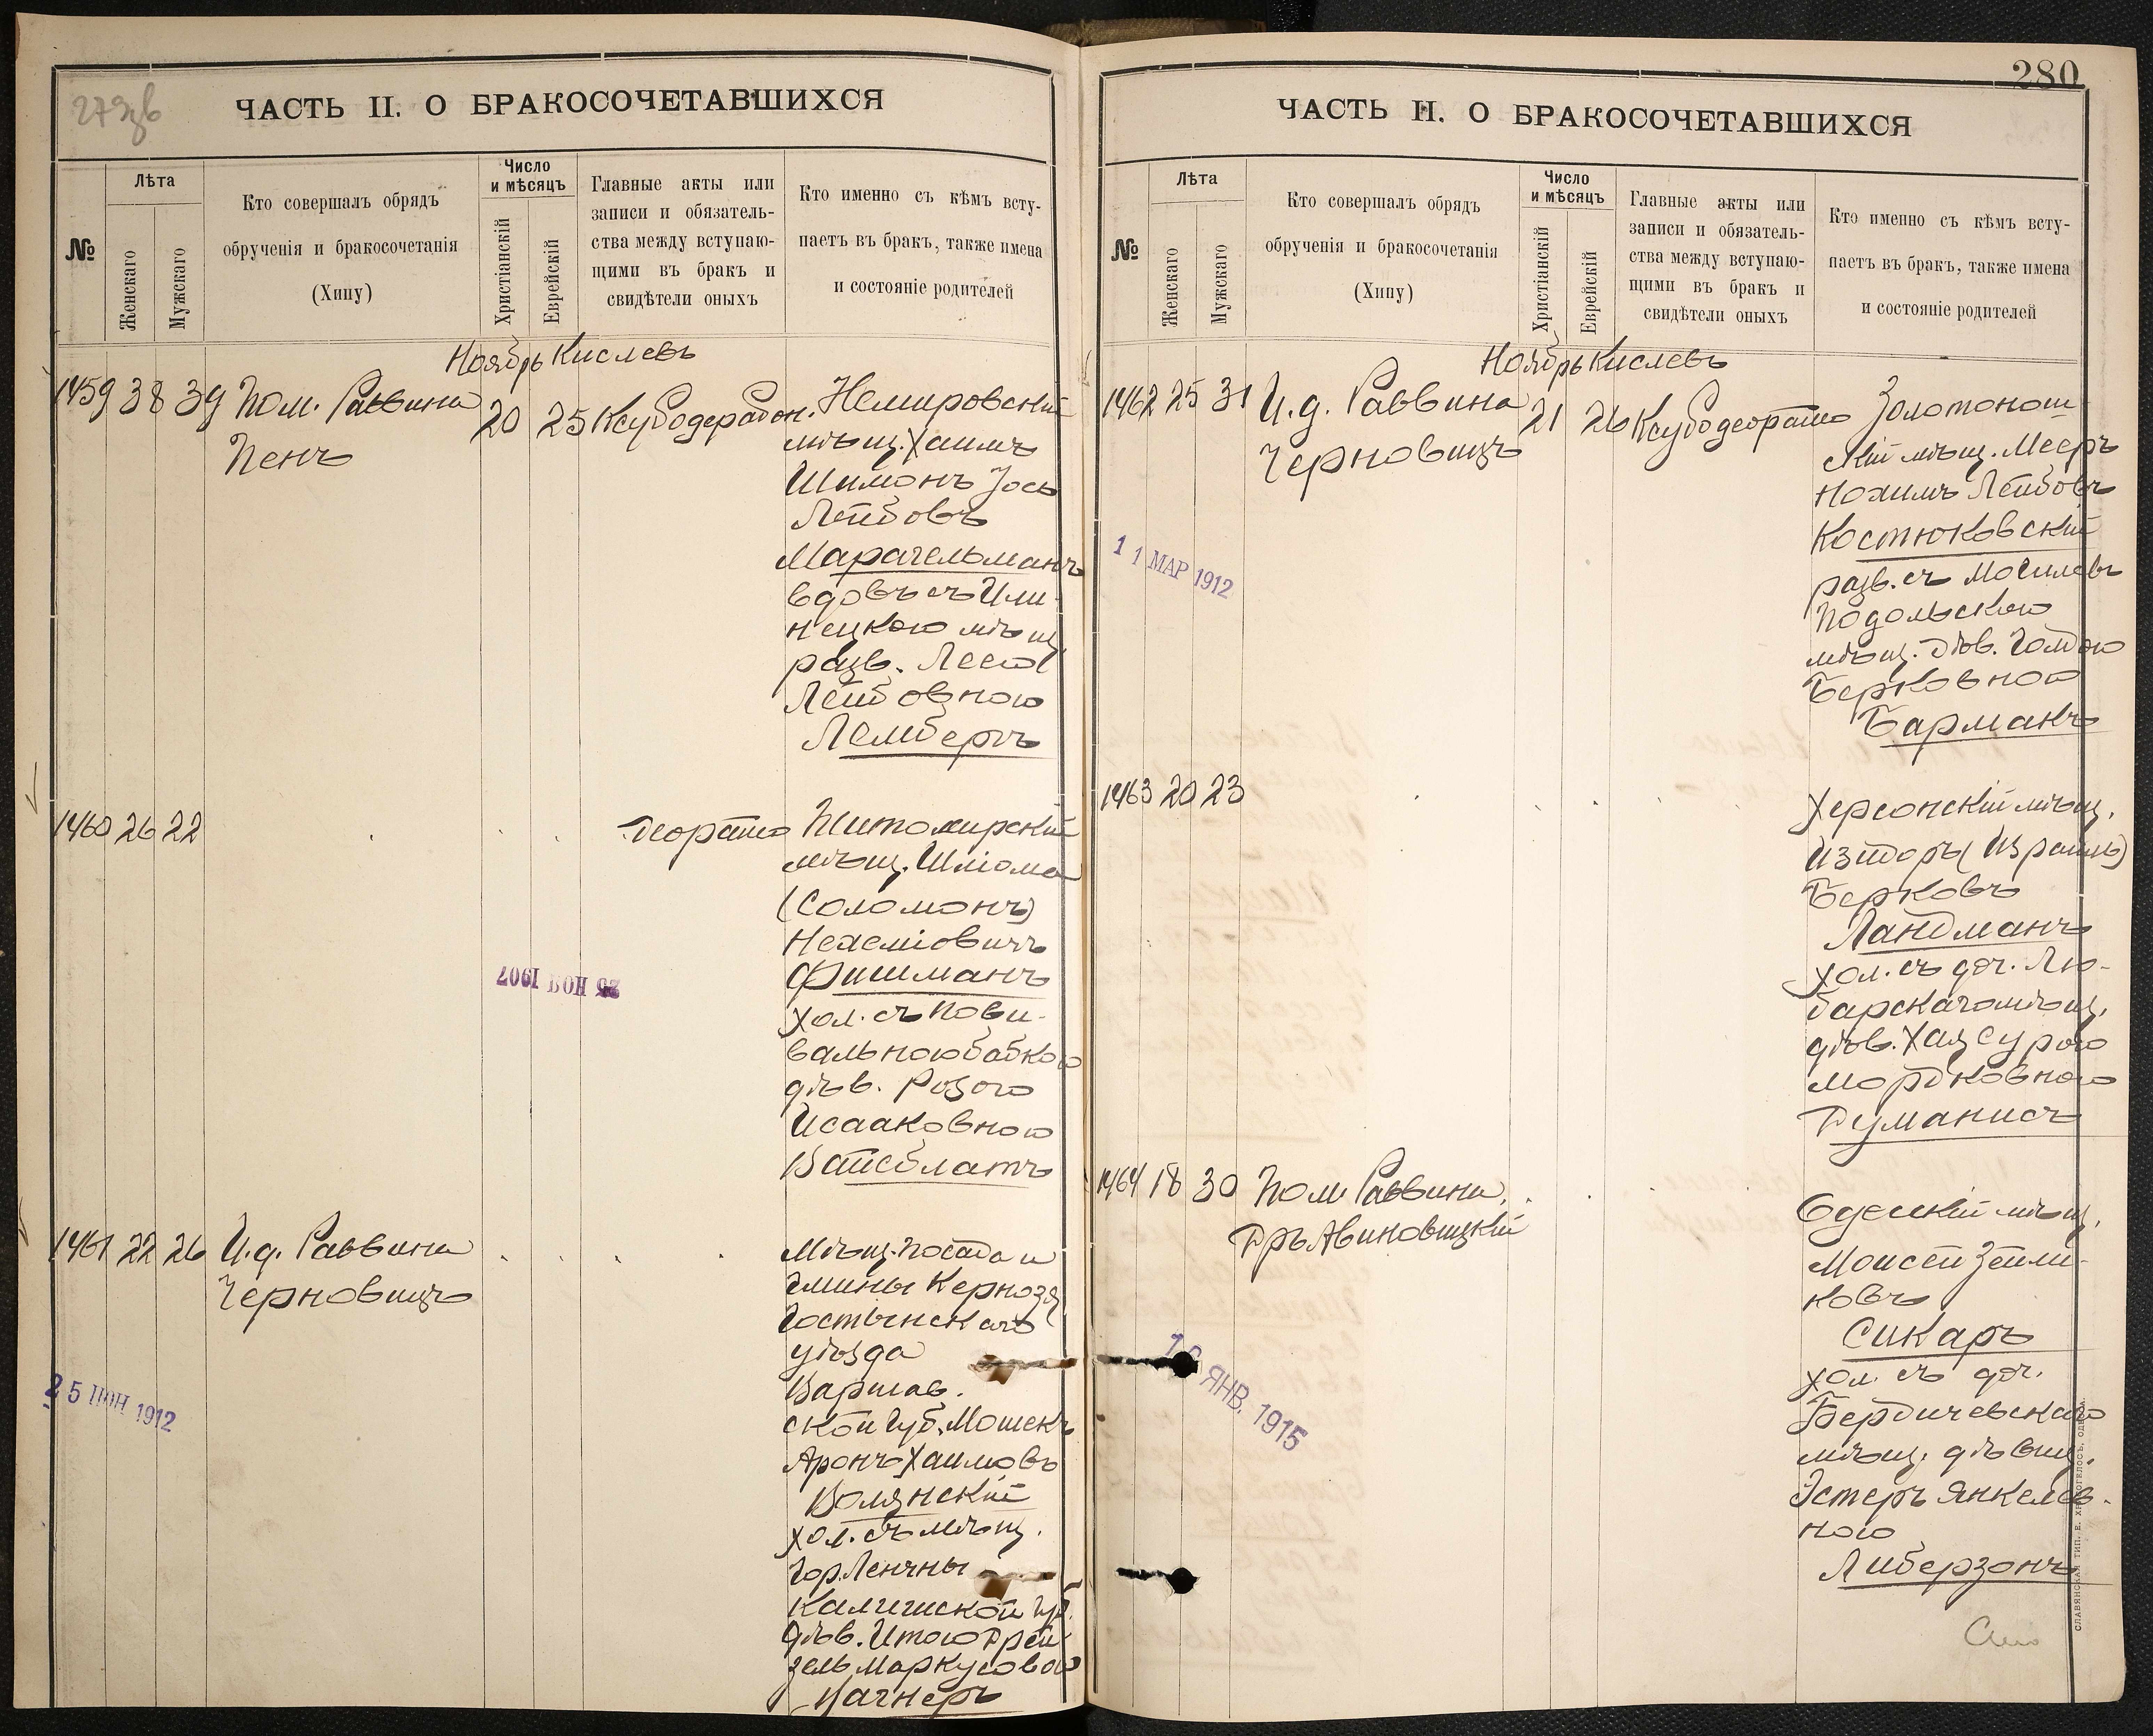 279об
ЧАСТЬ II. О БРАКОСОЧЕТАВШИХСЯ
№
Лѣта
Женскаго
Мужскаго
Кто совершалъ обрядъ
обрученія и бракосочетанія
(Хипу)
Число
и мѣсяцъ
Христіанскій
Еврейскій
Главные акты или
записи и обязатель-
ства между вступаю-
щими въ бракъ и
свидѣтели оныхъ
Кто именно съ кѣмъ всту-
паетъ въ бракъ, также имена
и состояніе родителей
Ноябрь Кислевъ
1459 38 39 Пом. Раввина
Пенъ
20 25
Немировскій
мѣщ. Хаимъ
Шимонъ Іось
Лейбовъ
Марагельманъ
вдовъ съ Или-
нецкою мѣщ
разв. Леею
Лейбовною
Лембергъ
1460 26 22
Житомирскій
мѣщ. Шліома
(Соломонъ)
Нехеміовичъ
Фишманъ
хол. съ пови-
вальною бабкою
дѣв. Розою
Исааковною
Вайсблатъ
25 НОЯ 1907
1461 22 26 И.д. Раввина
Черновицъ
Мѣщ. посада и
гмины Кернозя
Гостынскаго
уѣзда
Варшав.
ской губ. Мошекъ
Аронъ Хаимовъ
Волянскій
хол. съ мѣщ.
гор. Ленчны
Калишской губ.
дѣв. Итою Дрей
зель Маркусовою
Вагнеръ
25 ІЮН 1912
280
ЧАСТЬ II. О БРАКОСОЧЕТАВШИХСЯ
№
Лѣта
Женскаго
Мужскаго
Кто совершалъ обрядъ
обрученія и бракосочетанія
(Хипу)
Число
и мѣсяцъ
Христіанскій
Еврейскій
Главные акты или
записи и обязатель-
ства между вступаю-
щими въ бракъ и
свидѣтели оныхъ
Кто именно съ кѣмъ всту-
паетъ въ бракъ, также имена
и состояніе родителей
Ноябрь Кислевъ
1462 25 31 И.д. Раввина
Черновицъ
21 26
Золотонош-
скій мѣщ. Мееръ
Нохимъ Лейбовъ
Костюковскій
разв. съ Могилевъ
Подольскою
мѣщ. дѣв. Голдою
Берковною
Барманъ
11 МАР 1912
1463 20 23
Херсонскій мѣщ.
Изидоръ (Израиль)
Берковъ
Ландманъ
хол. съ доч. Лю-
барскаго мѣщ.
дѣв. Хая Сурою
Мордковною
Думанисъ
1464 18 30 Пом. Раввина
Дръ Авиновицкій
Одесскій мѣщ.
Моисей Зейли-
ковъ
Сикаръ
хол. съ доч.
Бердичевскаго
мѣщ. дѣвиц.
Эстеръ Янкелев-
ною
Либерзонъ
ЯНВ. 1915
СЛАВЯНСКАЯ ТИП. Е. ХРИСОГЕЛОСЪ, ОДЕССА.